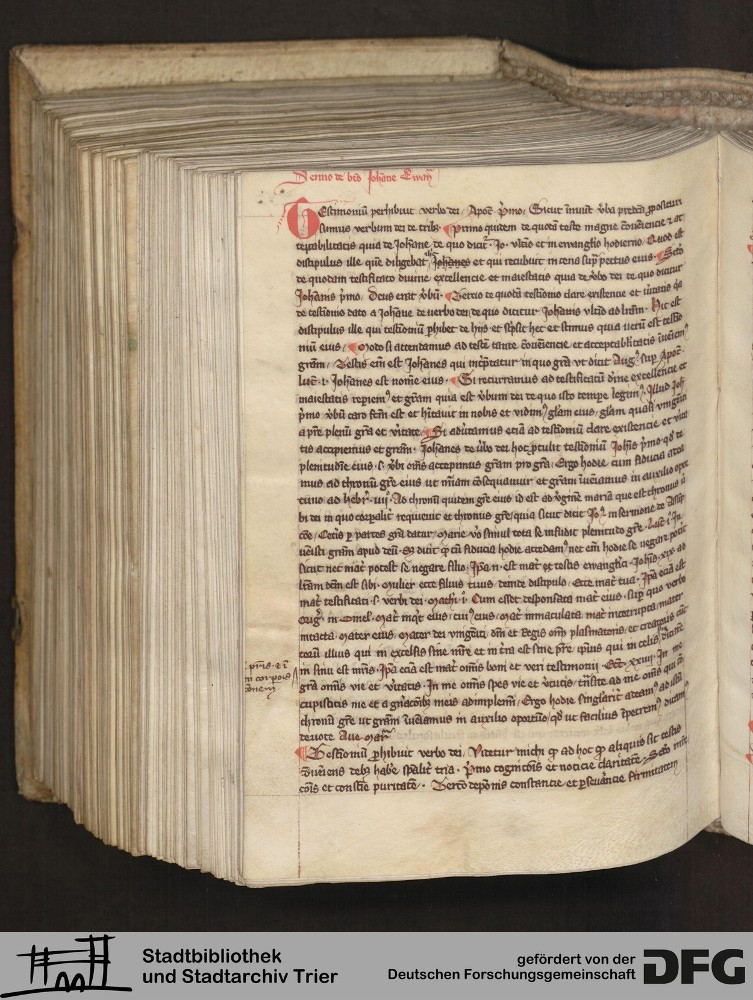 Sermo de bto Johane Ewang
Testimoniu perhibuit verbo dei Apoc pmo Sicut innuit vba preacta pposicui
sumus verbum dei de tribz Primo quidem de quoda teste magne conveniencie et ac
ceptabilitatis quia de Johane de quo dicit Jo vltio et in ewanglio hodierno Quod est
discipulus ille que diligebat ihs Johanes et qui recubuit in cena sup pectus eius Scdo
de quodam testificato divine excellencie et maiestatis quia de vbo dei de quo dicitur
Johanis pmo Deus erat vbu Tercio de quoda testimonio clare existencie et vitatis qa
de testimonio dato a Johane de verbo dei de quo dicitur Johanis vltio ad lram Hic est
discipulus ille qui testimoniu phibet de hijs et scpsit hec et scimus quia veru est testimo
niu eius Modo si attendamus ad teste tante convenience et acceptabilitatis inveniem
gram Testis em est Johanes qui intptatur in quo gra vt dicit Aug sup Apoc
luc i Johanes est nome eius Si recurramus ad testificatu dine excellencie et
maiestatis repiem et gram quia est vbum dei de quo isto tempe legim Illud Joh
pmo vbu caro fcm est et hitauit in nobis et vidim glam eius glam quasi vnigeniti
a pre plenu gra et vitate Si advertamus etia ad testimoniu clare existencie et vita
tis accipiemus et gram Johanes de vbo dei hoc ptulit testimoniu Johis pmo qd de
plenitudie eius s vbi oms accepimus gram pro gra Ergo hodie cum fiducia acce
mus ad thronu gre eius vt miam consequamur et gram inveniamus in auxilio opor
tuno ad hebr iiij Ad thronu quidem gre eius id est ad vgine maria que est thronus v
bi dei in quo corpalit requievit et thronus gre quia sicut dicit Jo in sermone de Assup
coe Ceteis p partes gra datur Marie vo simul tota se infudit plenitudo gre Luc i In
venisti gram apud deu Et dicit q cu fiducia hodie accedam nec em hodie se negare potit
sicut nec mat potest se negare filio Ipa n est mat et testis ewanglici Johis xix ad
lram dcm est sibi Mulier ecce filius tuus deinde discipulo Ecce mat tua Ipa ecia est
mat testificati s verbi dei Mathi i Cum esset desponsata mat eius sup quo verbo
Aug in Omel Mat inqt eius cui eius Mat immaculata mat incorrupta mater
intacta Mater eius Mater dei vnigeniti dni et Regis om plasmatoris et creatoris cuc
toru illius qui in excelsis sine mre et in tra est sine pre ipius qui in celis
in sinu est mris Ipa ecia est mat omis boni et veri testimonii Ecc xxiiii In me
gra omis vie et vitatis In me omis spes vie et vtutis tnsite ad me oms qui co
cupiscitis me et a gnacoibz meis adimplemi Ergo hodie singlarit adeam ad istu
thronu gre vt gram inveniamus in auxilio oportuo qd vt facilius ipetrem dicam
devote Ave Mar
Testimoniu phibuit verbo dei Videtur michi q ad hoc q aliquis sit testis
conveniens debz habe spalit tria Pmo cognicois et noticie claritate Scdo inte
cois et conscie puritate Tercio deponis constancie et pseverancie firmitatem
pris et i
in corpore
Stadtbibliothek
und Stadtarchiv Trier
gefördert von der
Deutschen Forschungsgemeinschaft
DFG